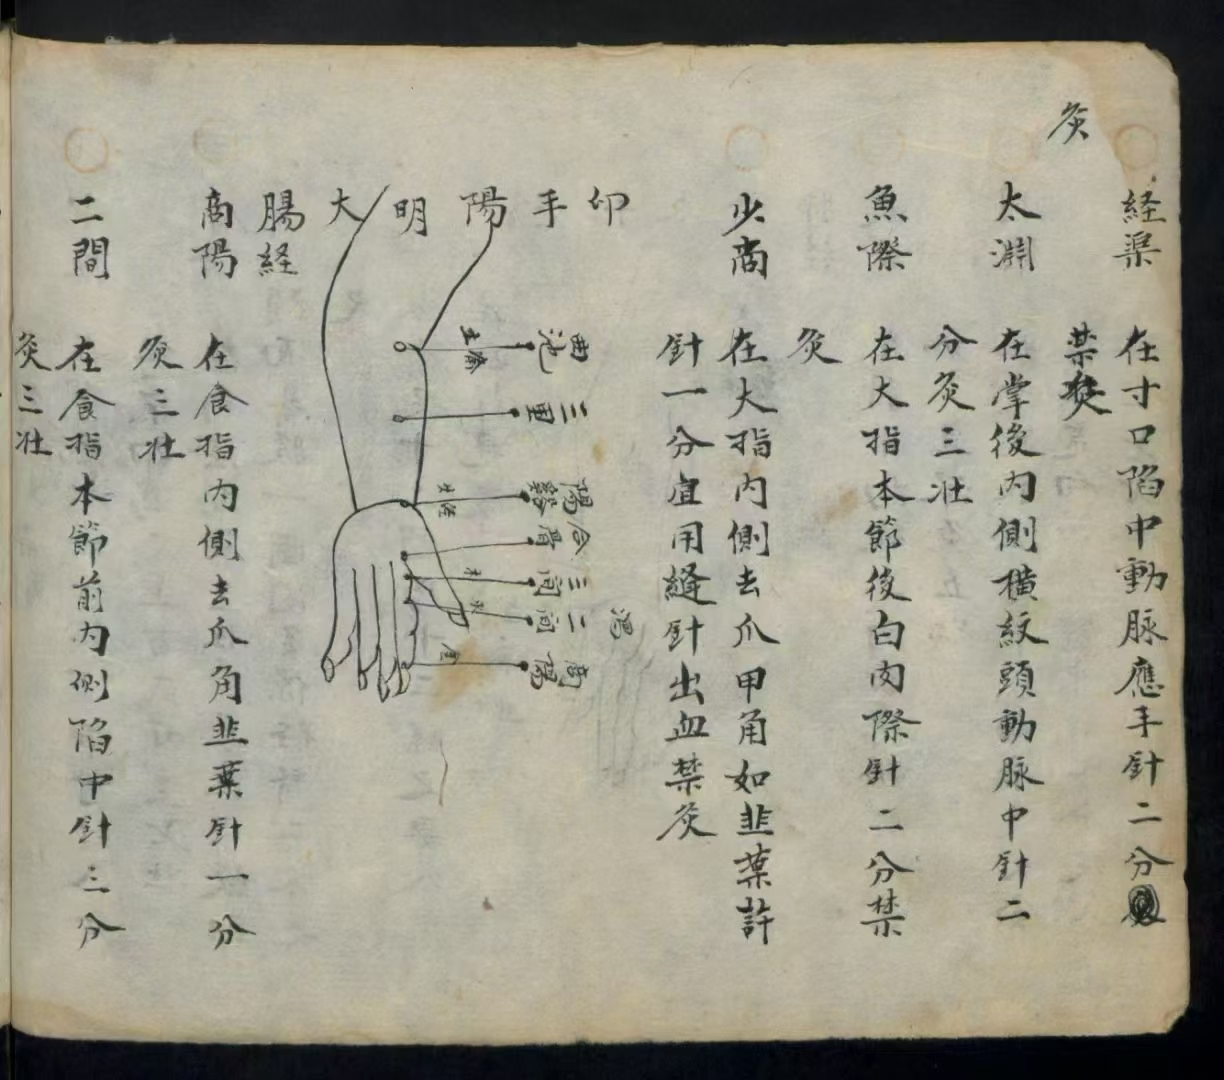 灸
経渠 在寸口陷中動脉應手針二分
禁灸
太淵 在掌後内側横紋頭動脉中針二
分灸三壮
魚際 在大指本節後白肉際針二分禁
灸
少商 在大指内側去爪甲角如韭葉許
針一分宜用縫針出血禁灸
手陽明大
腸経
曲池
三里
陽谿
合骨
三間
二間
商陽
商陽 在食指内側去爪角韭葉針一分
灸三壮
二間 在食指本節前内側陷中針三分
灸三壮